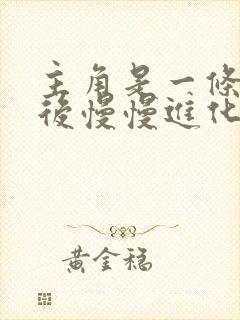 主角是一條
後慢慢進化
黃金稿